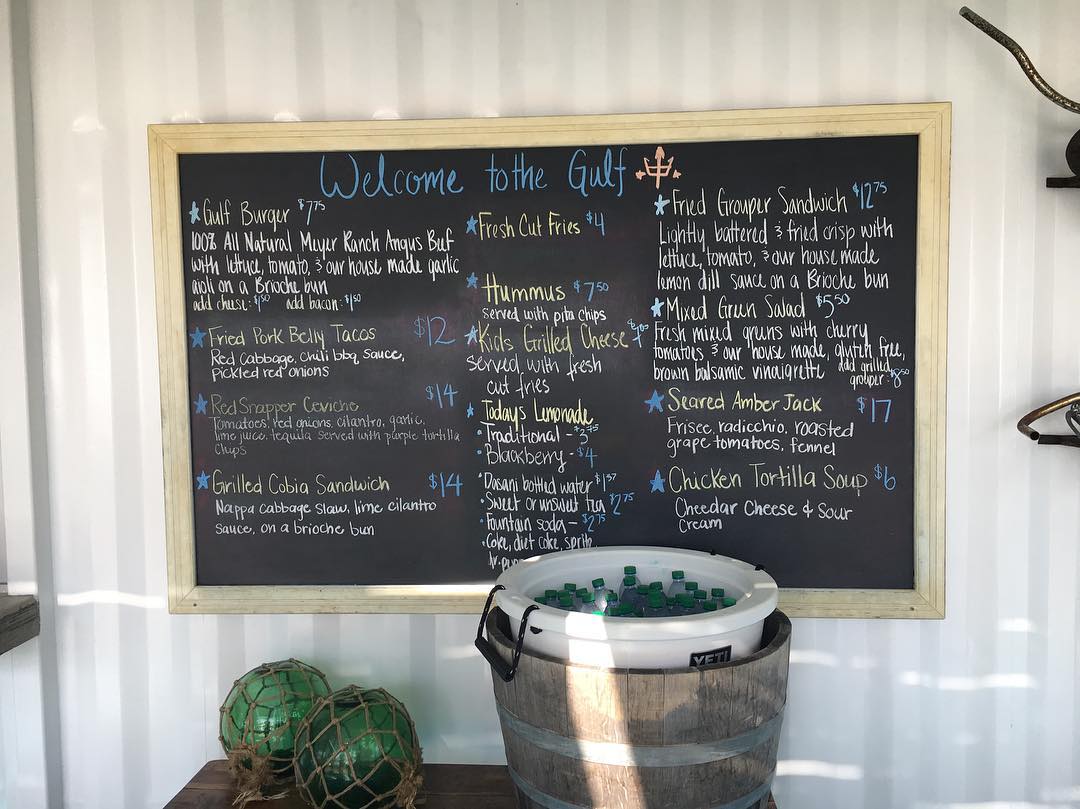 Welcome to the Gulf
Gulf Burger $7.75
100% All Natural Meyer Ranch Angus Beef
with lettuce, tomato, & our house made garlic
aioli on a Brioche bun
add cheese: $1.50 add bacon: $1.50
Fried Pork Belly Tacos $12
Red cabbage, chili bbq, sauce,
pickled red onions
Red Snapper Ceviche $14
Tomatoes, red onions, cilantro, garlic,
lime juice, tequila served with purple tortilla
chips
Grilled Cobia Sandwich $14
Nappa cabbage slaw, lime cilantro
sauce, on a brioche bun
Fresh Cut Fries $4
Hummus $7.50
served with pita chips
Kids Grilled Cheese
served with fresh
cut fries
Todays Lemonade
Traditional - $3.75
Blackberry - $4
Dasani bottled water $1.87
Sweet or unsweet tea $2.75
Fountain soda - $2.75
Coke, diet coke, sprite
Fried Grouper Sandwich $12.75
Lightly battered & fried crisp with
lettuce, tomato, & our house made
lemon dill sauce on a Brioche bun
Mixed Green Salad $5.50
Fresh mixed greens with cherry
tomatoes & our house made, gluten free,
brown balsamic vinaigrette add grilled
grouper: $8.50
Seared Amber Jack $17
Frisee, radicchio, roasted
grape tomatoes, fennel
Chicken Tortilla Soup $6
Cheedar Cheese & Sour
Cream
YETI